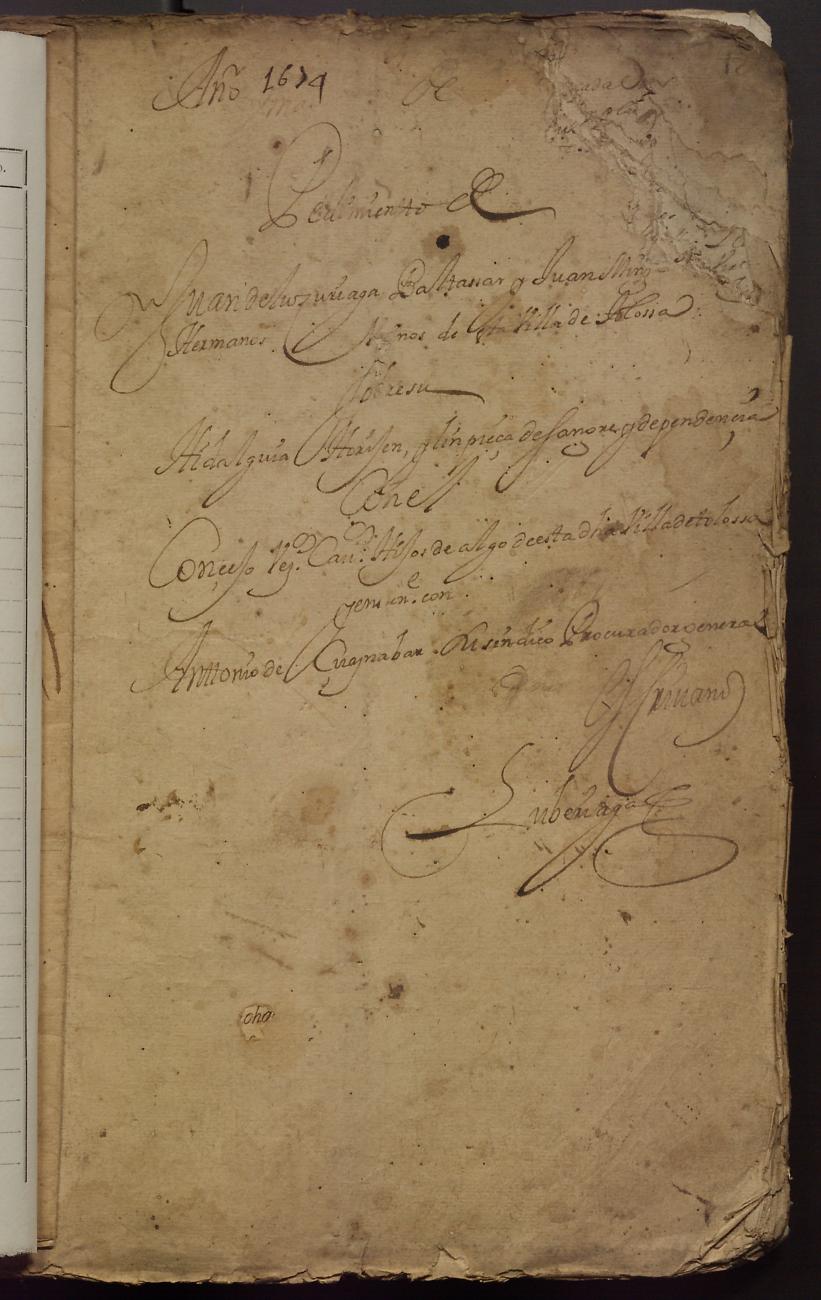 Año 1674
de
Pedimiento de
Juan de luzuriaga Baltassar y Juan Mrn̄z
Hermanos Veçinos de esta Villa de Tolossa
sobre su
Hidalguia Origen, y linpieça de sangre, y dependencia
Con el
Conçejo Veg.os Cau.os Hijos de algo de esta dha Villa de tolossa
y en su n.e con
Anttonio de Su sindico Procurador general
Escriuano
oho